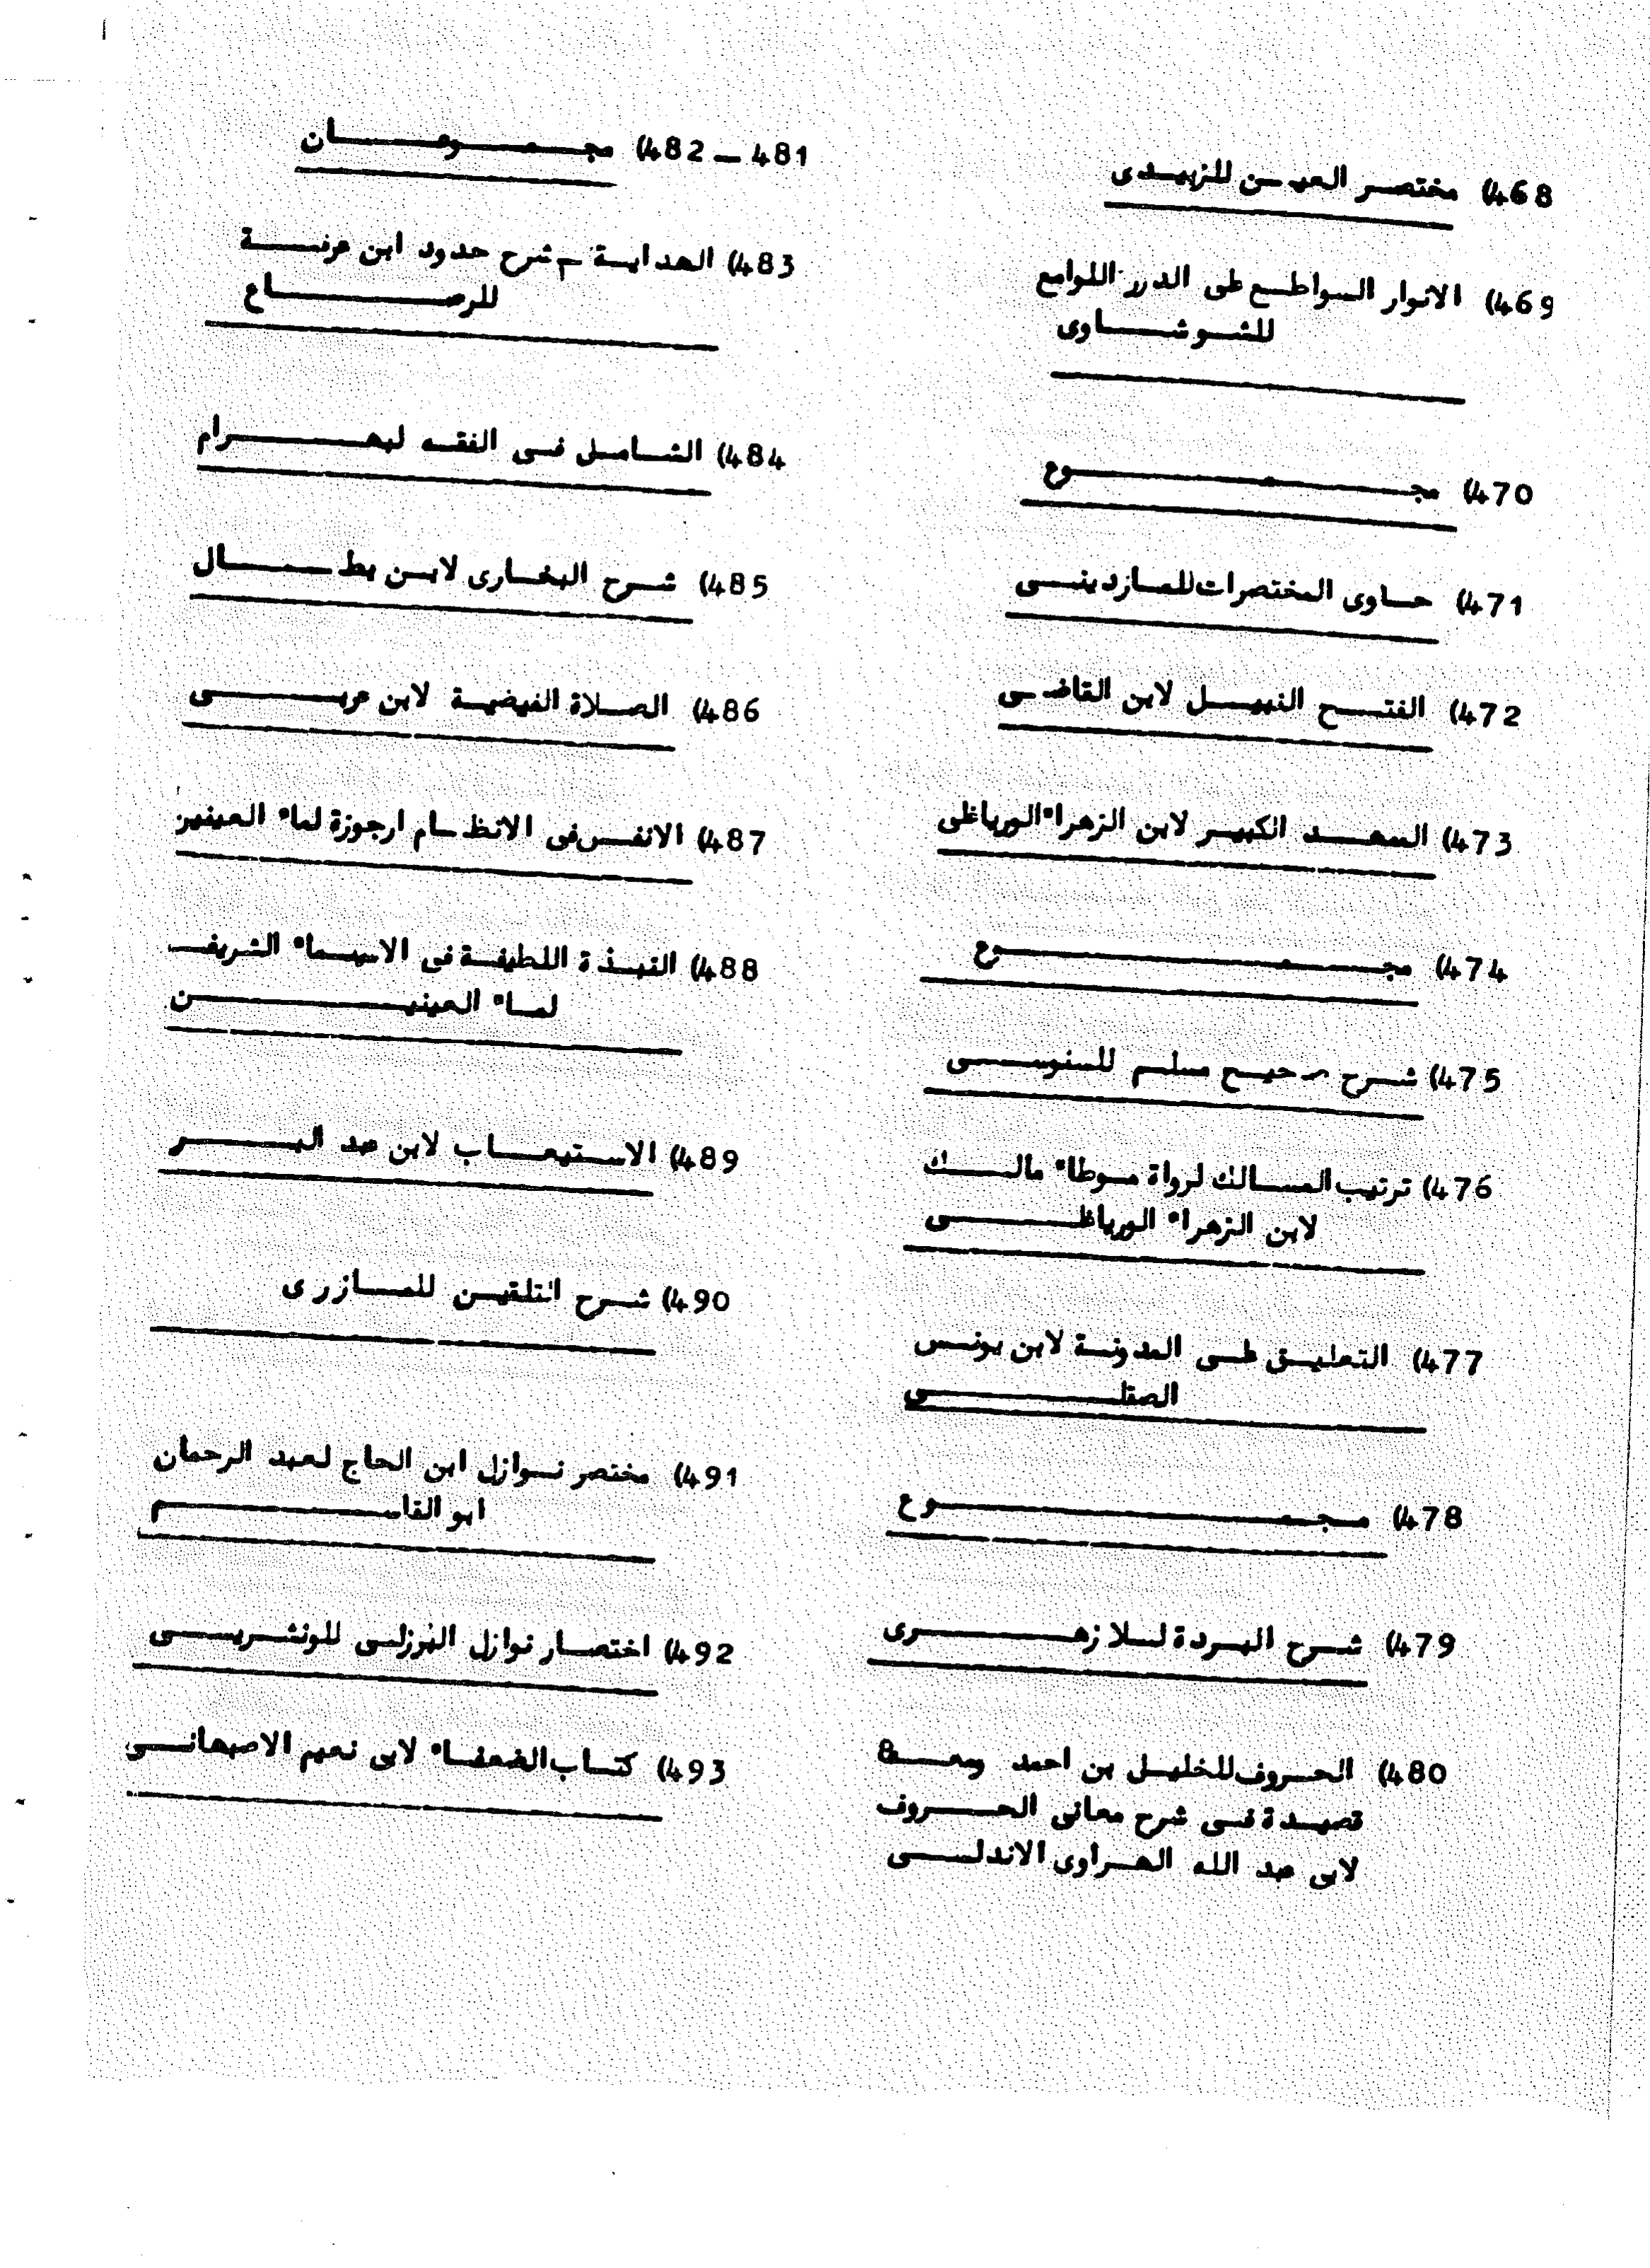 468) مختصر العين للزبيدى
469) الانوار السواطع على الدرر اللوامع
للشوشاوى
470) مجموع
471) حاوى المختصرات للمازدينى
472) الفتح النبيل لابن القاضى
473) السعد الكبير لابن الزهراء الورياظى
474) مجموع
475) شرح صحيح مسلم للسنوسى
476) ترتيب المسالك لرواة موطاء مالك
لابن الزهراء الورياظى
477) التعليق على المدونة لابن يونس
الصقلى
478) مجموع
479) شرح البردة للازهرى
480) الحروف للخليل بن احمد ومعه
قصيدة فى شرح معانى الحروف
لابى عبد الله الهراوى الاندلسى
481 – 482) مجموعان
483) الهداية شرح حدود ابن عرفة
للرصاع
484) الشامل فى الفقه لبهرام
485) شرح البخارى لابن بطال
486) الصلاة الفيضية لابن عربى
487) الانفس فى الانظام ارجوزة لماء العينين
488) النبذة اللطيفة فى الاسماء الشريف
لماء العينين
489) الاستيعاب لابن عبد البر
490) شرح التلقين للمازرى
491) مختصر نوازل ابن الحاج لعبد الرحمان
ابو القاسم
492) اختصار نوازل البرزلى للونشريسى
493) كتاب الضعفاء لابى نعيم الاصبهانى